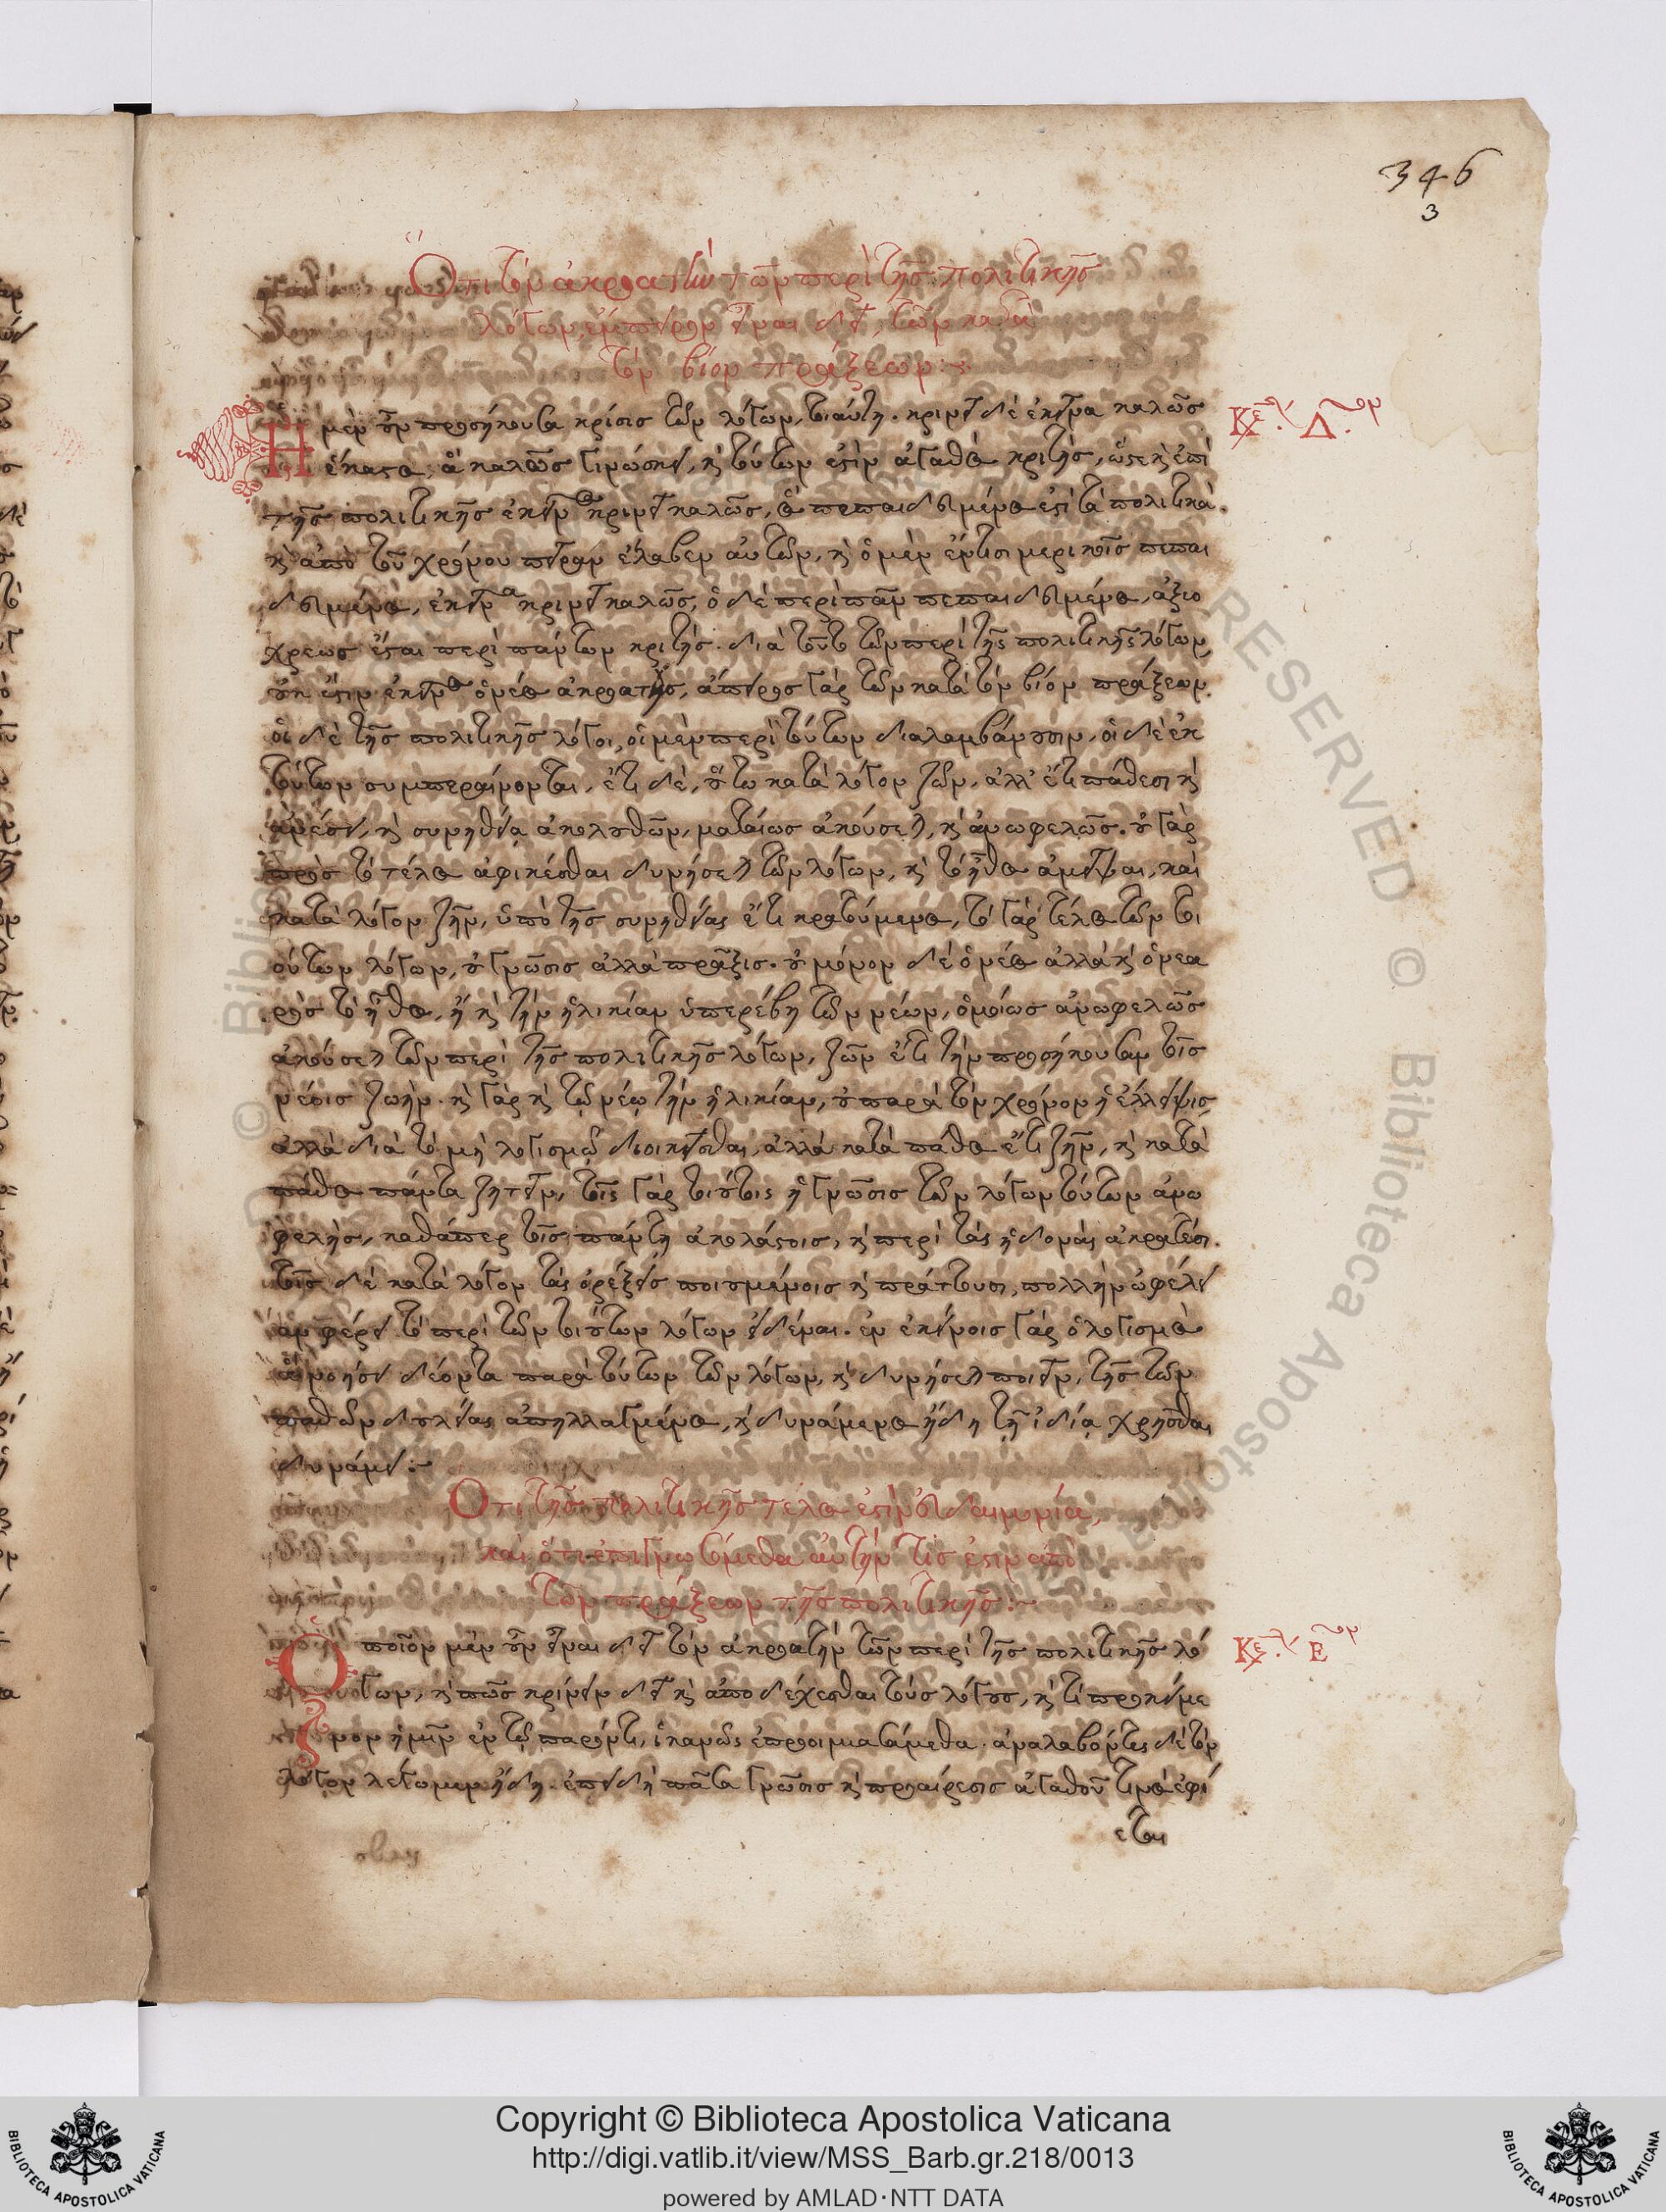 346
3
Ὅτι τὸν ἀκροατὴν τῶν περὶ τῆς πολιτικῆς
λόγων, ἔμπειρον εἶναι δεῖ, τῶν κατὰ
τὸν βίον πράξεων:~
Ἡ μὲν οὖν προσήκουσα κρίσις τῶν λόγων, τοιαύτη. κρίνει δὲ ἐκεῖνα καλῶς
Κεφ. Δον
ἕκαστος, ἃ καλῶς γινώσκει, καὶ τούτων ἐστὶν ἀγαθὸς κριτής, ὥστε καὶ ἐπὶ
τῆς πολιτικῆς ἐκεῖνος κρινεῖ καλῶς, ὃς πεπαιδευμένος ἐστὶ τὰ πολιτικά.
καὶ ἀπὸ τοῦ χρόνου πεῖραν ἔλαβεν αὐτῶν, καὶ ὁ μὲν ἔν τισι μερικοῖς πεπαι
δευμένος, ἐκεῖνα κρινεῖ καλῶς, ὁ δὲ περὶ πᾶν πεπαιδευμένος, ἀξιο
χρεως ἔσται περὶ πάντων κριτής. διὰ τοῦτο τῶν περὶ τῆς πολιτικῆς λόγων,
οὐκ ἔστιν ἐκεῖνος ὁ νέος ἀκροατής, ἄπειρος γὰρ τῶν κατὰ τὸν βίον πράξεων.
οἱ δὲ τῆς πολιτικῆς λόγοι, οἱ μὲν περὶ τούτων διαλαμβάνουσιν, οἱ δὲ ἐκ
τούτων συμπεραίνονται, ἔτι δὲ, οὔπω κατὰ λόγον ζῶν, ἀλλ' ἔτι πάθεσι καὶ
ἀνέσει, καὶ συνηθείᾳ ἀκολουθῶν, ματαίως ἀκούσεται, καὶ ἀνωφελῶς. οὐ γὰρ
πρὸς τὸ τέλος ἀφικέσθαι δυνήσεται τῶν λόγων, καὶ τὸ ἦθος ἀμεῖψαι, καὶ
κατὰ λόγον ζῆν, ὑπὸ τῆς συνηθείας ἔτι κρατούμενος, τὸ γὰρ τέλος τῶν τοι
ούτων λόγων, οὐ γνῶσις ἀλλὰ πρᾶξις. οὐ μόνον δὲ ὁ νέος ἀλλὰ καὶ ὁ νεα
ρὸς τὸ ἦθος, εἰ καὶ τὴν ἡλικίαν ὑπερέβη τῶν νέων, ὁμοίως ἀνωφελῶς
ἀκούσεται τῶν περὶ τῆς πολιτικῆς λόγων, ζῶν ἔτι τὴν προσήκουσαν τοῖς
νέοις ζωήν. καὶ γὰρ καὶ τῷ νέῳ τὴν ἡλικίαν, οὐ παρὰ τὸν χρόνον ἡ ἔλλειψις
ἀλλὰ διὰ τὸ μὴ λογισμῷ διοικεῖσθαι, ἀλλὰ κατὰ πάθος ἔτι ζῆν, καὶ κατὰ
πάθος πάντα ζητεῖν, τοῖς γὰρ τοιούτοις ἡ γνῶσις τῶν λόγων τούτων ἀνω
φελής, καθάπερ τοῖς πάντη ἀκολάστοις, καὶ περὶ τὰς ἡδονὰς ἀκρατέσι.
τοῖς δὲ κατὰ λόγον τὰς ὀρέξεις ποιουμένοις καὶ πράττουσι, πολλὴν ὠφέλει
αν φέρει τὸ περὶ τῶν τοιούτων λόγων εἰδέναι. ἐν ἐκείνοις γὰρ ὁ λογισμὸς
ἃ νοήσει δέοντα παρὰ τούτων τῶν λόγων, καὶ δυνήσεται ποιεῖν, τῆς τῶν
παθῶν δουλείας ἀπηλλαγμένος, καὶ δυνάμενος ἤδη τῇ ἰδίᾳ χρῆσθαι
δυνάμει:~
Ὅτι τῆς πολιτικῆς τέλος ἐστὶν εὐδαιμονία,
καὶ ὅτι ἐπιγνωσόμεθα αὐτὴν τίς ἐστιν ἀπὸ
τῶν πράξεων τῆς πολιτικῆς:~
Ὁποῖον μὲν οὖν εἶναι δεῖ τὸν ἀκροατὴν τῶν περὶ τῆς πολιτικῆς λό
Κεφ. Εον
γων, καὶ πῶς κρίνειν δεῖ καὶ ἀποδέχεσθαι τοὺς λόγους, καὶ τί προκείμε
νον ἡμῖν ἐν τῷ παρόντι, ἱκανῶς ἐπροοιμιασάμεθα. ἀναλαβόντες δὲ τὸν
λόγον λέγωμεν ἤδη. ἐπειδὴ πᾶσα γνῶσις καὶ προαίρεσις ἀγαθοῦ τινὸς ἐφί
εται
Copyright © Biblioteca Apostolica Vaticana
http://digi.vatlib.it/view/MSS_Barb.gr.218/0013
powered by AMLAD·NTT DATA
BIBLIOTECA APOSTOLICA VATICANA
BIBLIOTECA APOSTOLICA VATICANA